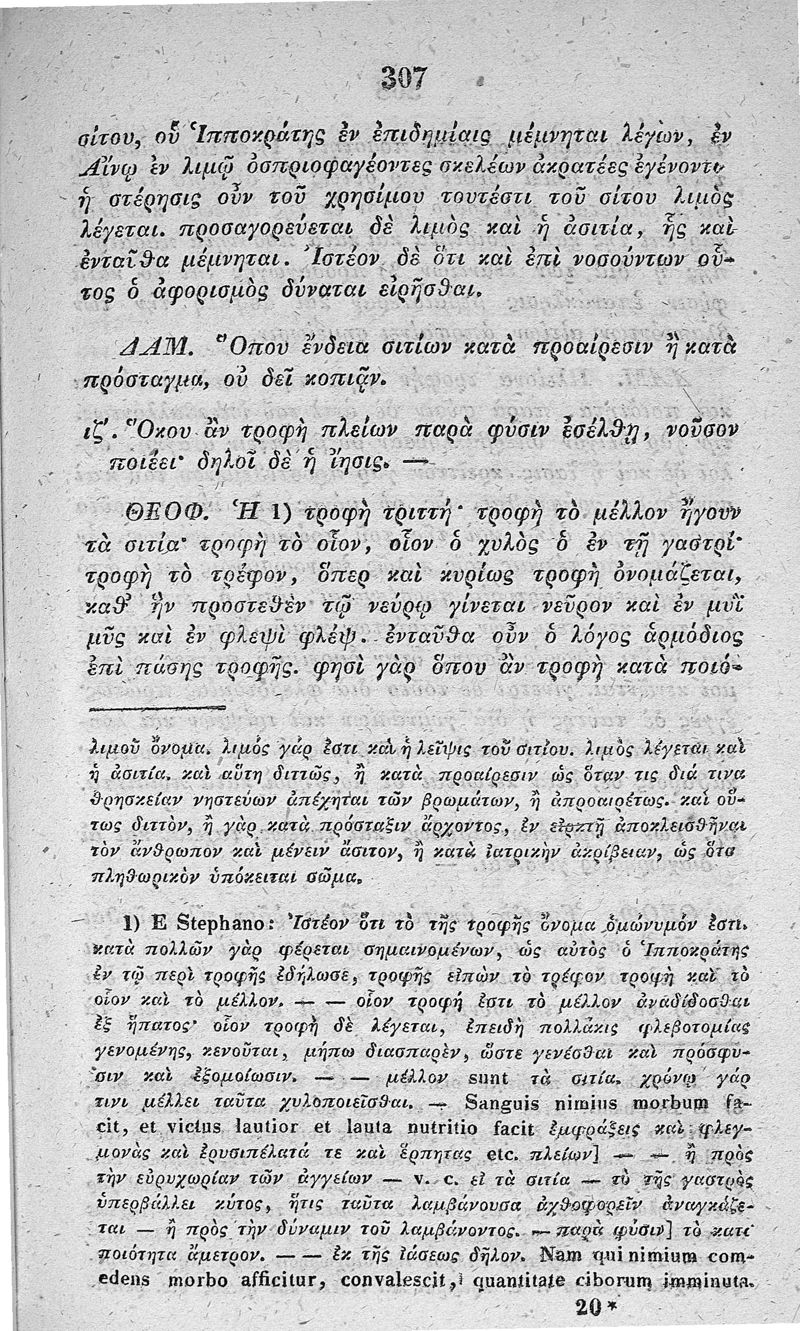 307
σίτου, οὗ Ἱπποκράτης ἐν ἐπιδημίαις μέμνηται λέγων, ἐν
Αἴνῳ ἐν λιμῷ ὀσπριοφαγέοντες σκελέων ἀκρατέες ἐγένοντο
ἡ στέρησις οὖν τοῦ χρησίμου τουτέστι τοῦ σίτου λιμὸς
λέγεται. προσαγορεύεται δὲ λιμὸς καὶ ἡ ἀσιτία, ἧς καὶ
ἐνταῦθα μέμνηται. Ἰστέον δὲ ὅτι καὶ ἐπὶ νοσούντων οὗ-
τος ὁ ἀφορισμὸς δύναται εἰρῆσθαι.
ΔΑΜ. Ὅπου ἔνδεια σιτίων κατὰ προαίρεσιν ἢ κατὰ
πρόσταγμα, οὐ δεῖ κοπιᾷν.
ιζ΄. Ὅκου ἂν τροφὴ πλείων παρὰ φύσιν ἐσέλθῃ, νοῦσον
ποιέει· δηλοῖ δὲ ἡ ἴησις. —
ΘΕΟΦ. Ἡ 1) τροφὴ τριττή· τροφὴ τὸ μέλλον ἤγουν
τὰ σιτία· τροφὴ τὸ οἷον, οἷον ὁ χυλὸς ὁ ἐν τῇ γαστρί·
τροφὴ τὸ τρέφον, ὅπερ καὶ κυρίως τροφὴ ὀνομάζεται,
καθ᾽ ἣν προστεθὲν τῷ νεύρῳ γίνεται νεῦρον καὶ ἐν μυῒ
μῦς καὶ ἐν φλεψὶ φλέψ. ἐνταῦθα οὖν ὁ λόγος ἁρμόδιος
ἐπὶ πάσης τροφῆς. φησὶ γὰρ ὅπου ἂν τροφὴ κατὰ ποιό-
λιμοῦ ὄνομα. λιμός γάρ ἐστι καὶ ἡ λεῖψις τοῦ σιτίου. λιμὸς λέγεται καὶ
ἡ ἀσιτία. καὶ αὕτη διττῶς, ἢ κατὰ προαίρεσιν ὡς ὅταν τις διά τινα
θρησκείαν νηστεύων ἀπέχηται τῶν βρωμάτων, ἢ ἀπροαιρέτως. καὶ οὕ-
τως διττὸν, ἢ γὰρ κατὰ πρόσταξιν ἄρχοντος, ἐν εἱρκτῇ ἀποκλεισθῆναι
τὸν ἄνθρωπον καὶ μένειν ἄσιτον, ἢ κατὰ ἰατρικὴν ἀκρίβειαν, ὡς ὅτε
πληθωρικὸν ὑπόκειται σῶμα.
1) E Stephano: Ἰστέον ὅτι τὸ τῆς τροφῆς ὄνομα ὁμώνυμόν ἐστι.
κατὰ πολλῶν γὰρ φέρεται σημαινομένων, ὡς αὐτὸς ὁ Ἱπποκράτης
ἐν τῷ περὶ τροφῆς ἐδήλωσε, τροφῆς εἰπὼν τὸ τρέφον τροφὴ καὶ τὸ
οἷον καὶ τὸ μέλλον. — — οἷον τροφή ἐστι τὸ μέλλον ἀναδίδοσθαι
ἐξ ἥπατος· οἷον τροφὴ δὲ λέγεται, ἐπειδὴ πολλάκις φλεβοτομίας
γενομένης, κενοῦται, μήπω διασπαρὲν, ὥστε γενέσθαι καὶ πρόσφυ-
σιν καὶ ἐξομοίωσιν. — — μέλλον sunt τὰ σιτία. χρόνῳ γάρ
τινι μέλλει ταῦτα χυλοποιεῖσθαι. — Sanguis nimius morbum fa-
cit, et victus lautior et lauta nutritio facit ἐμφράξεις καὶ φλεγ-
μονὰς καὶ ἐρυσιπέλατά τε καὶ ἕρπητας etc. πλείων] — — ἢ πρὸς
τὴν εὐρυχωρίαν τῶν ἀγγείων — v. c. εἰ τὰ σιτία — τὸ τῆς γαστρὸς
ὑπερβάλλει κύτος, ἥτις ταῦτα λαμβάνουσα ἀχθοφορεῖν ἀναγκάζε-
ται — ἢ πρὸς τὴν δύναμιν τοῦ λαμβάνοντος. — παρὰ φύσιν] τὸ κατὰ
ποιότητα ἄμετρον. — — ἐκ τῆς ἰάσεως δῆλον. Nam qui nimium com-
edens morbo afficitur, convalescit, quantitate ciborum imminuta.
20*